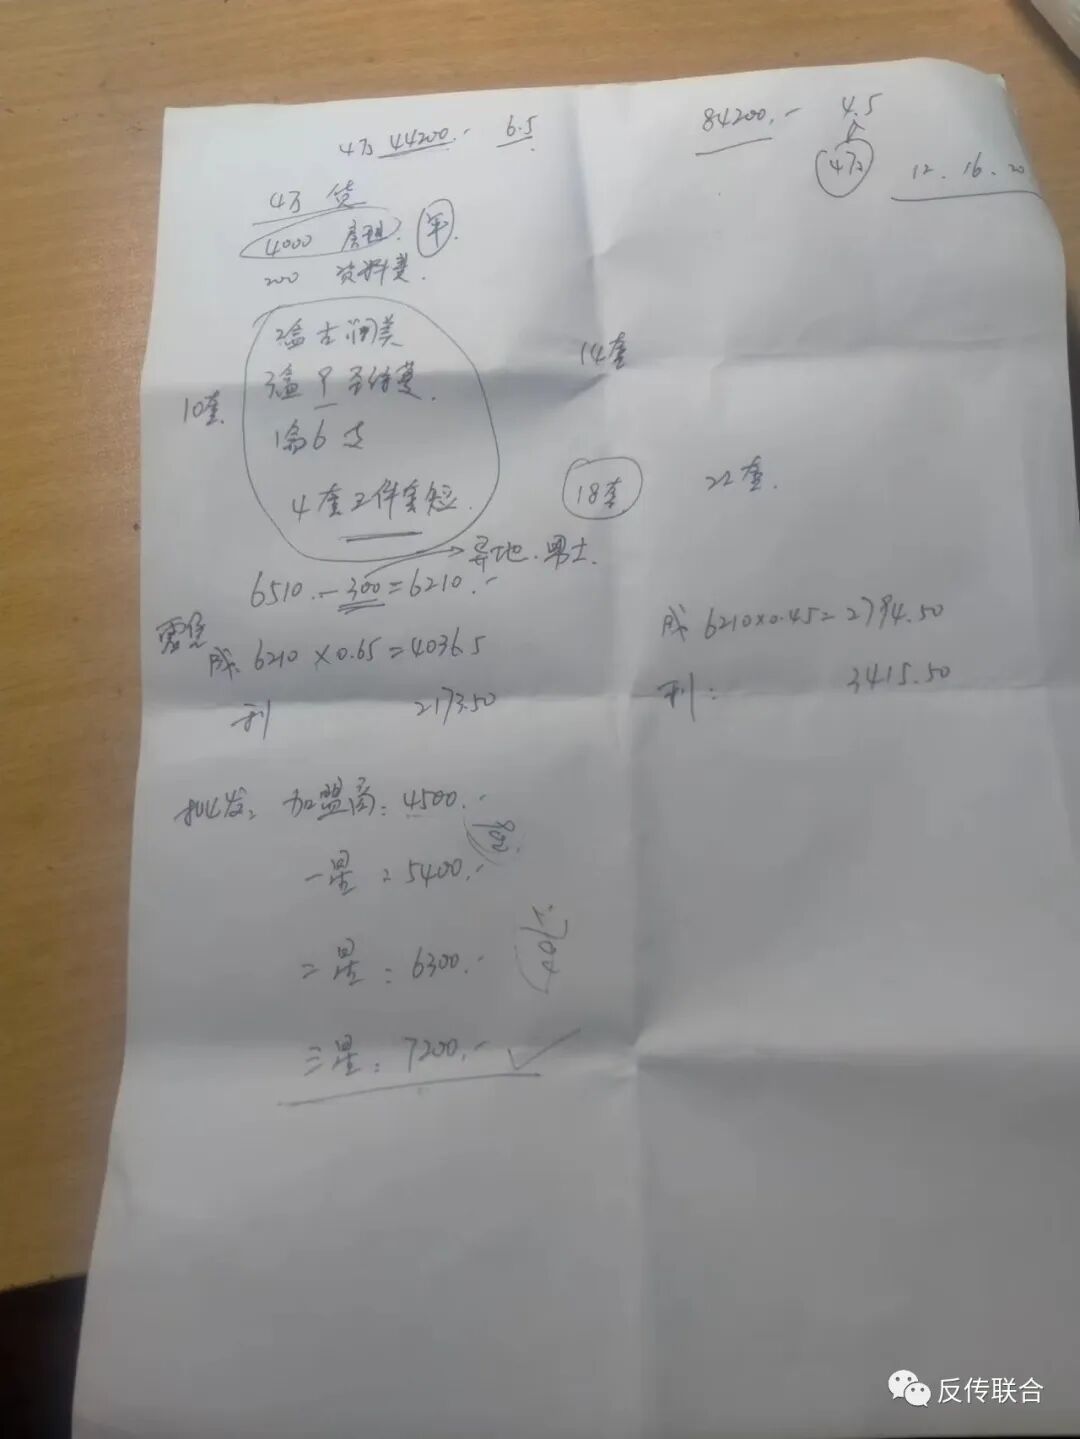 4万 44200.- 6.5
84200.- 4.5
4万
12.16.20
4万 货
4000 房租. 年.
200 资料费.
2盒古润美
3盒
10套
1俞6支
4套三件套短.
14套
18套
22套.
异地.男士.
6510.-300=6210.-
零售
成: 6210×0.65=4036.5
利 2173.50
成 6210×0.45=2794.50
利: 3415.50
批发: 加盟商: 4500.-
900.
一星: 5400.-
二星: 6300.-
2700.
三星: 7200.- ✓
反传联合